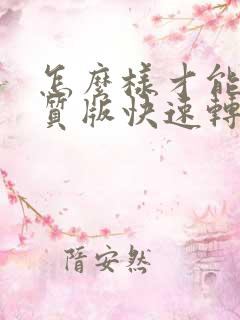 怎麼樣才能
質版快速轉
隋安然